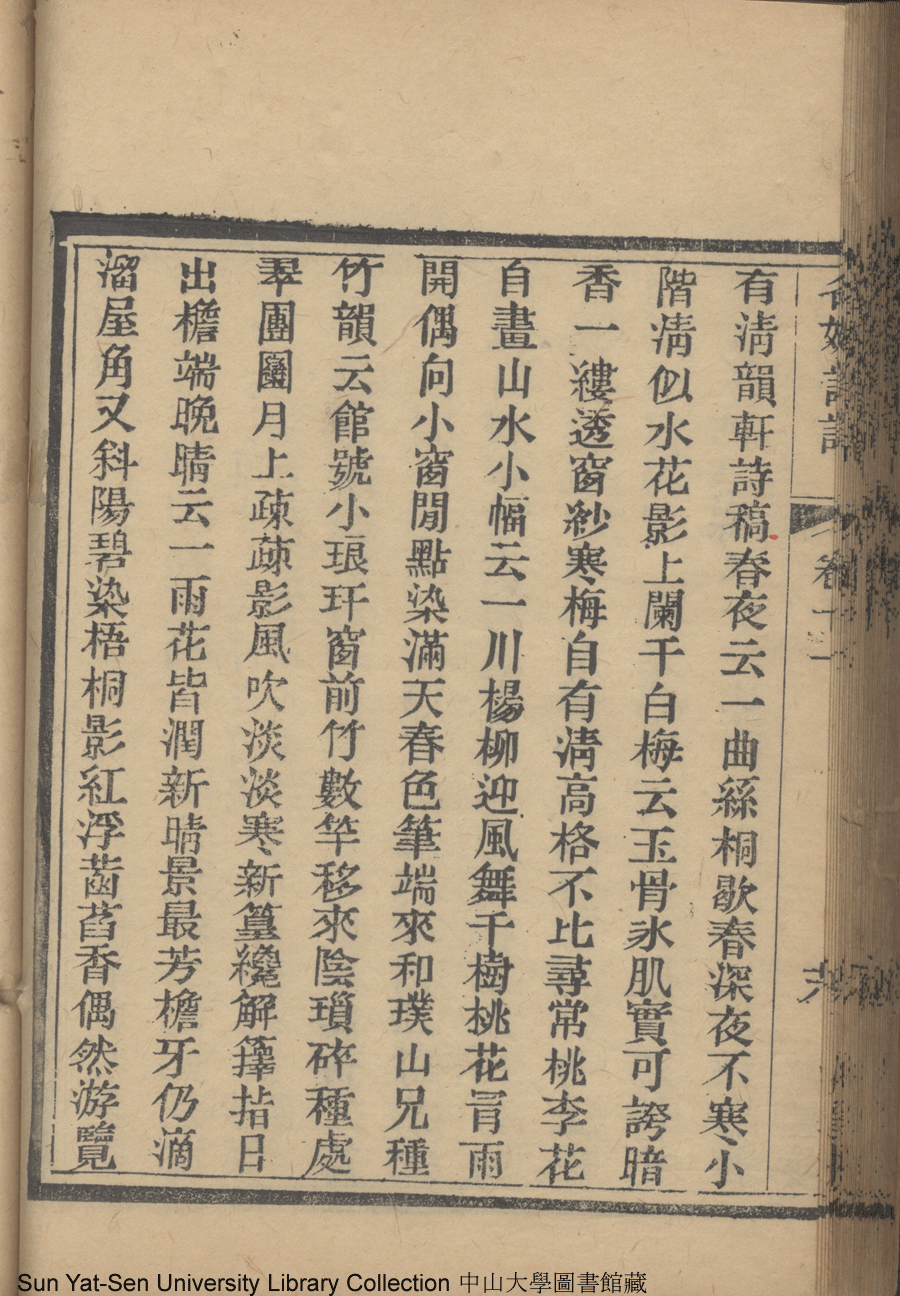 有淸韻軒詩稿春夜云一曲絲桐歇春深夜不寒小
階淸似水花影上闌干白梅云玉骨氷肌實可誇暗
香一縷透窗紗寒梅自有淸高格不比尋常桃李花
自畫山水小幅云一川楊柳迎風舞千樹桃花冒雨
開偶向小窗閒點染滿天春色筆端來和璞山兄種
竹韻云館號小琅玕窗前竹數竿移來陰瑣碎種處
翠團圞月上疎疎影風吹淡淡寒新篁纔解籜指日
出檐端晚晴云一雨花皆潤新晴景最芳檐牙仍滴
溜屋角又斜陽碧染梧桐影紅浮菡萏香偶然游覽
Sun Yat-Sen University Library Collection 中山大學圖書館藏